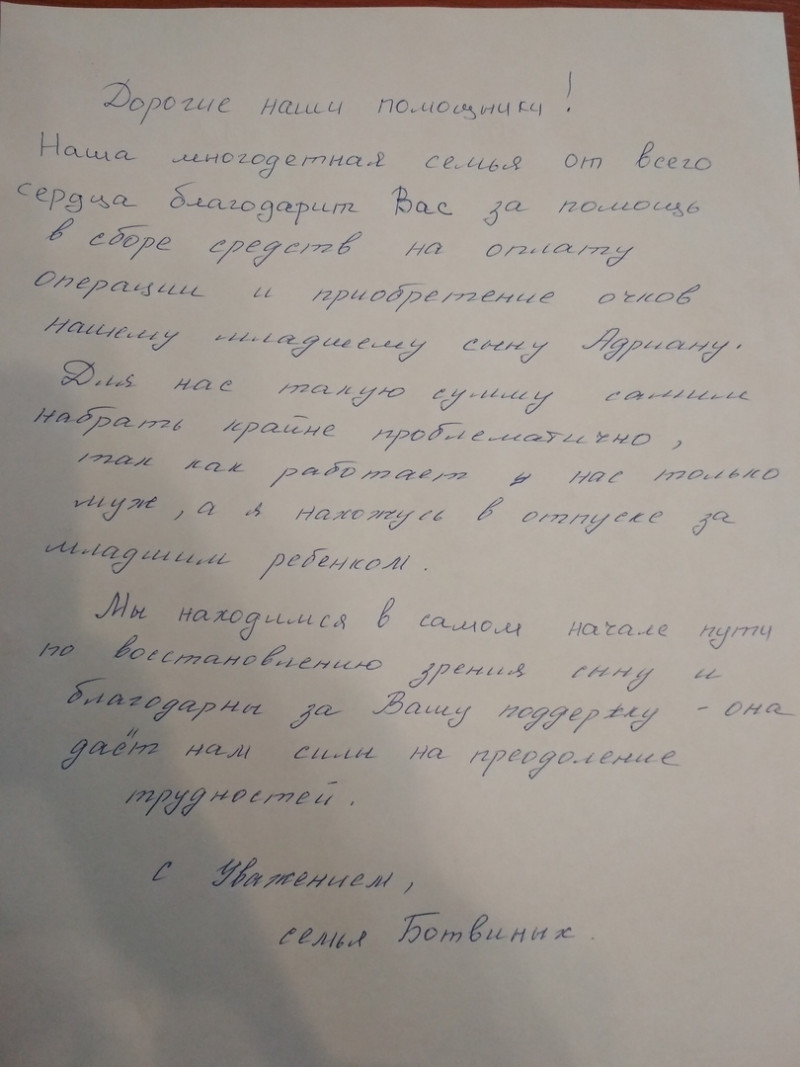 Дорогие наши помощники!
Наша многодетная семья от всего
сердца благодарит Вас за помощь
в сборе средств на оплату
операции и приобретение очков
нашему младшему сыну Адриану.
Для нас такую сумму самим
набрать крайне проблематично,
так как работает у нас только
муж, а я нахожусь в отпуске за
младшим ребенком.
Мы находимся в самом начале пути
по восстановлению зрения сыну и
благодарны за Вашу поддержку - она
даёт нам силы на преодоление
трудностей.
С Уважением,
семья Ботвиных.